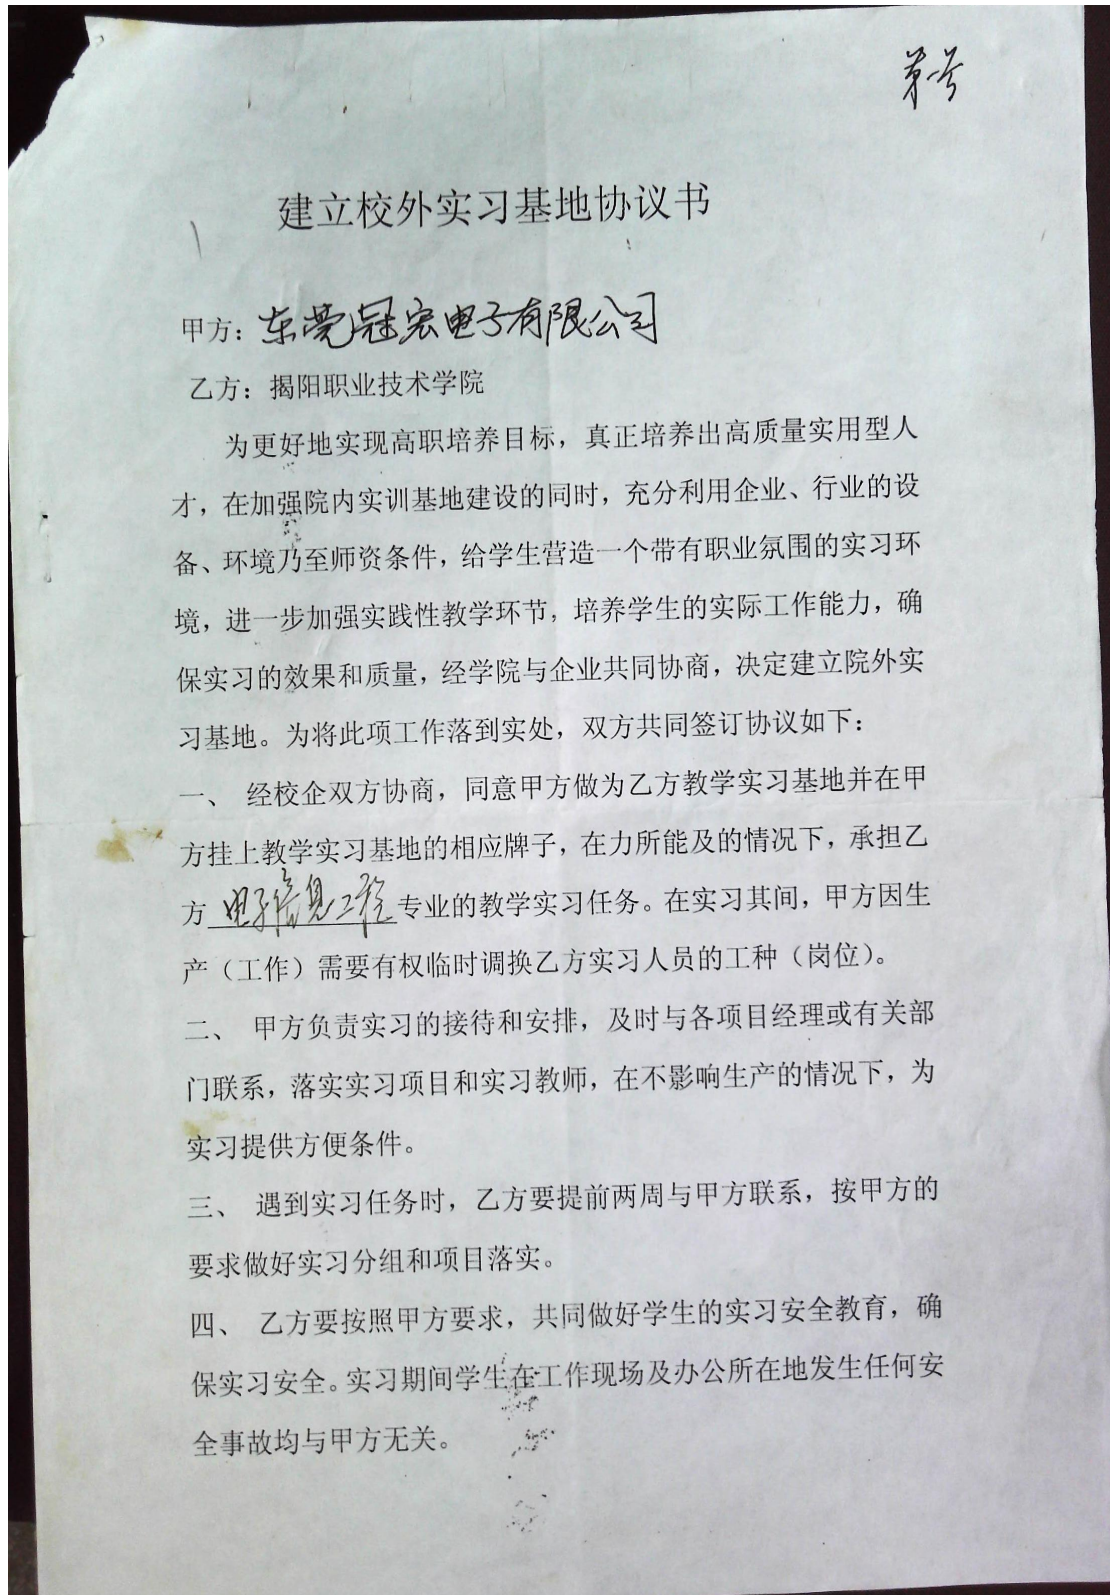 第一号
建立校外实习基地协议书
甲方：东莞冠宏电子有限公司
乙方：揭阳职业技术学院
为更好地实现高职培养目标，真正培养出高质量实用型人
才，在加强院内实训基地建设的同时，充分利用企业、行业的设
备、环境乃至师资条件，给学生营造一个带有职业氛围的实习环
境，进一步加强实践性教学环节，培养学生的实际工作能力，确
保实习的效果和质量，经学院与企业共同协商，决定建立院外实
习基地。为将此项工作落到实处，双方共同签订协议如下：
一、 经校企双方协商，同意甲方做为乙方教学实习基地并在甲
方挂上教学实习基地的相应牌子，在力所能及的情况下，承担乙
方电子信息工程专业的教学实习任务。在实习其间，甲方因生
产（工作）需要有权临时调换乙方实习人员的工种（岗位）。
二、 甲方负责实习的接待和安排，及时与各项目经理或有关部
门联系，落实实习项目和实习教师，在不影响生产的情况下，为
实习提供方便条件。
三、 遇到实习任务时，乙方要提前两周与甲方联系，按甲方的
要求做好实习分组和项目落实。
四、 乙方要按照甲方要求，共同做好学生的实习安全教育，确
保实习安全。实习期间学生在工作现场及办公所在地发生任何安
全事故均与甲方无关。